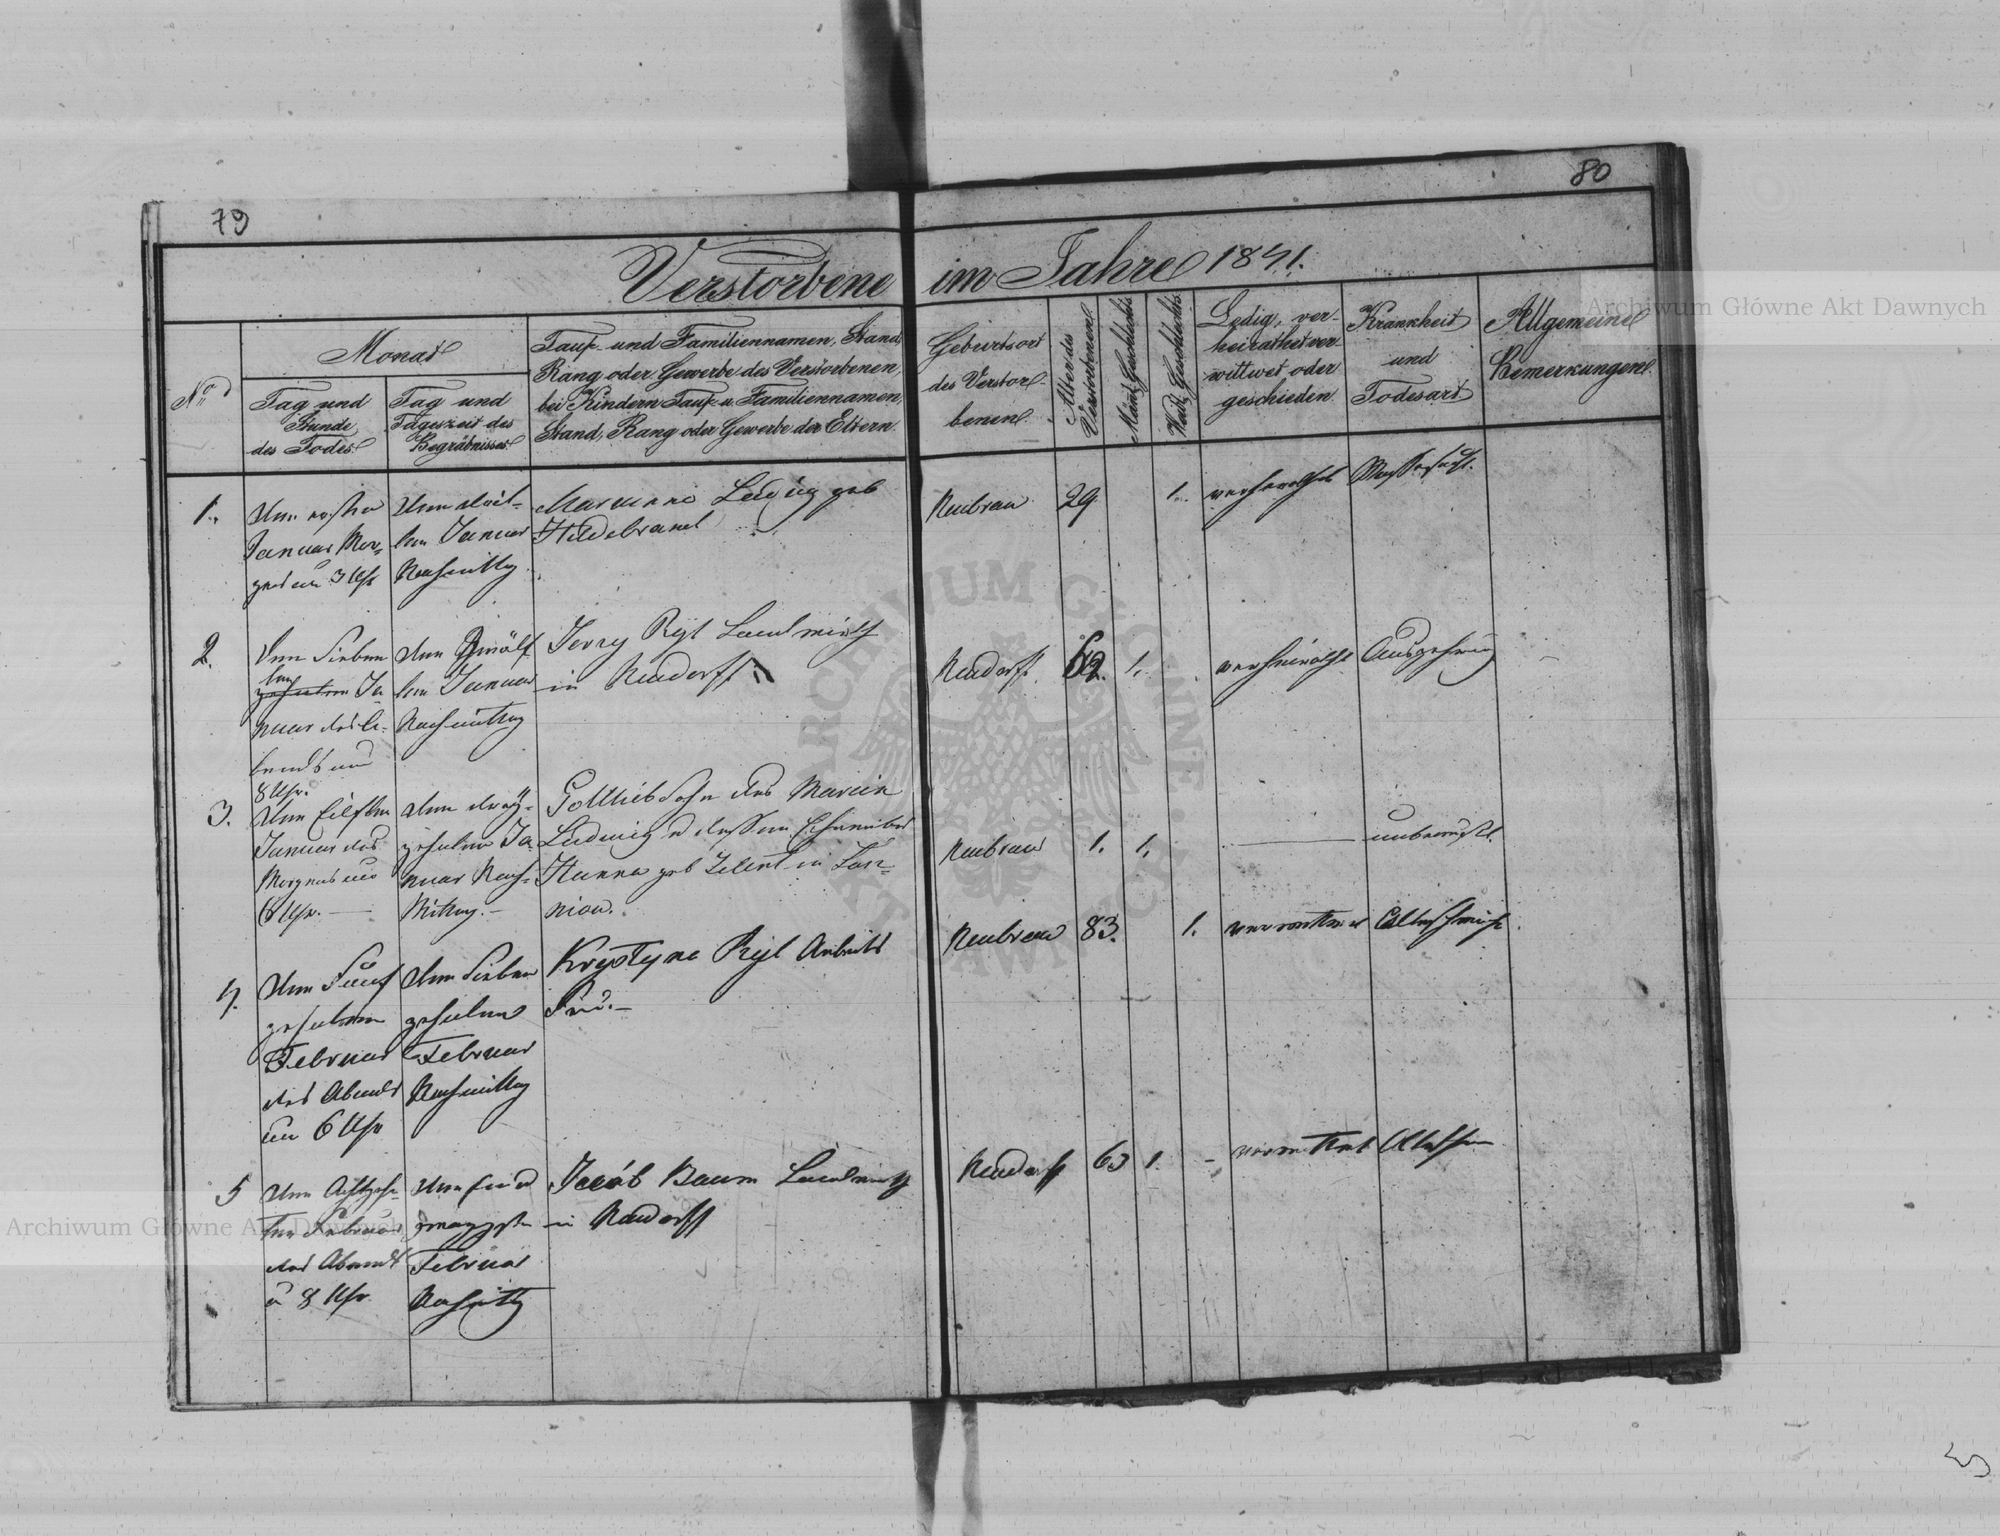 79
80
Verstorbene im Jahre 1841.
No
Monat
Tag und
Stunde
des Todes
Tag und
Tageszeit des
Begräbnisses
Tauf- und Familiennamen, Stand,
Rang oder Gewerbe des Verstorbenen,
bei Kindern Tauf- u. Familiennamen,
Stand, Rang oder Gewerbe der Eltern.
Geburtsort
des Verstor-
benen
Alter des
Verstorbenen
Mänl. Geschlechts
Weibl. Geschlechts
Ledig, ver-
heirathet ver-
wittwet oder
geschieden
Krankheit
und
Todesart
Allgemeine
Bemerkungen
1.
Januar Mor-
gens um 3 Uhr
Januar
Nachmittag
Marianna Ludwig geb
Hildebrand
Neubrau
29
1.
verheirathet
Wassersucht.
2.
Den Sieben
ten Ja
nuar des A-
bends um
8 Uhr.
den Zwölf
ten Januar
Nachmittag
Jerzy Ryl Landwirth
in Neudorff
Neudorff
62.
1.
verheirathet
Auszehrung
3.
den Eilften
Januar des
Morgens um
6 Uhr.
den drey-
zehnten Ja
nuar Nach-
mittag.
Gottlieb Sohn des Marcin
Ludwig u dessen Ehweibes
Hanna geb in
Neubrau
1.
1.
unbewusst.
4.
den Fünf
zehnten
Februar
des Abends
um 6 Uhr
den Sieben
zehnten
Februar
Nachmittag
Krystyna Ryl Arbeits
Neubrau
83.
1.
verwittwet
Altersschwäche
5
den Achtzehn-
ten Februar
des Abends
u 8 Uhr
zwanzigsten
Februar
Nachmittg
Jacób Baum Landwirth
in Neudorff
Neudorff
63
1.
verwittwet
Archiwum Główne Akt Dawnych
Archiwum Główne Akt Dawnych
ARCHIWUM GŁÓWNE AKT DAWNYCH